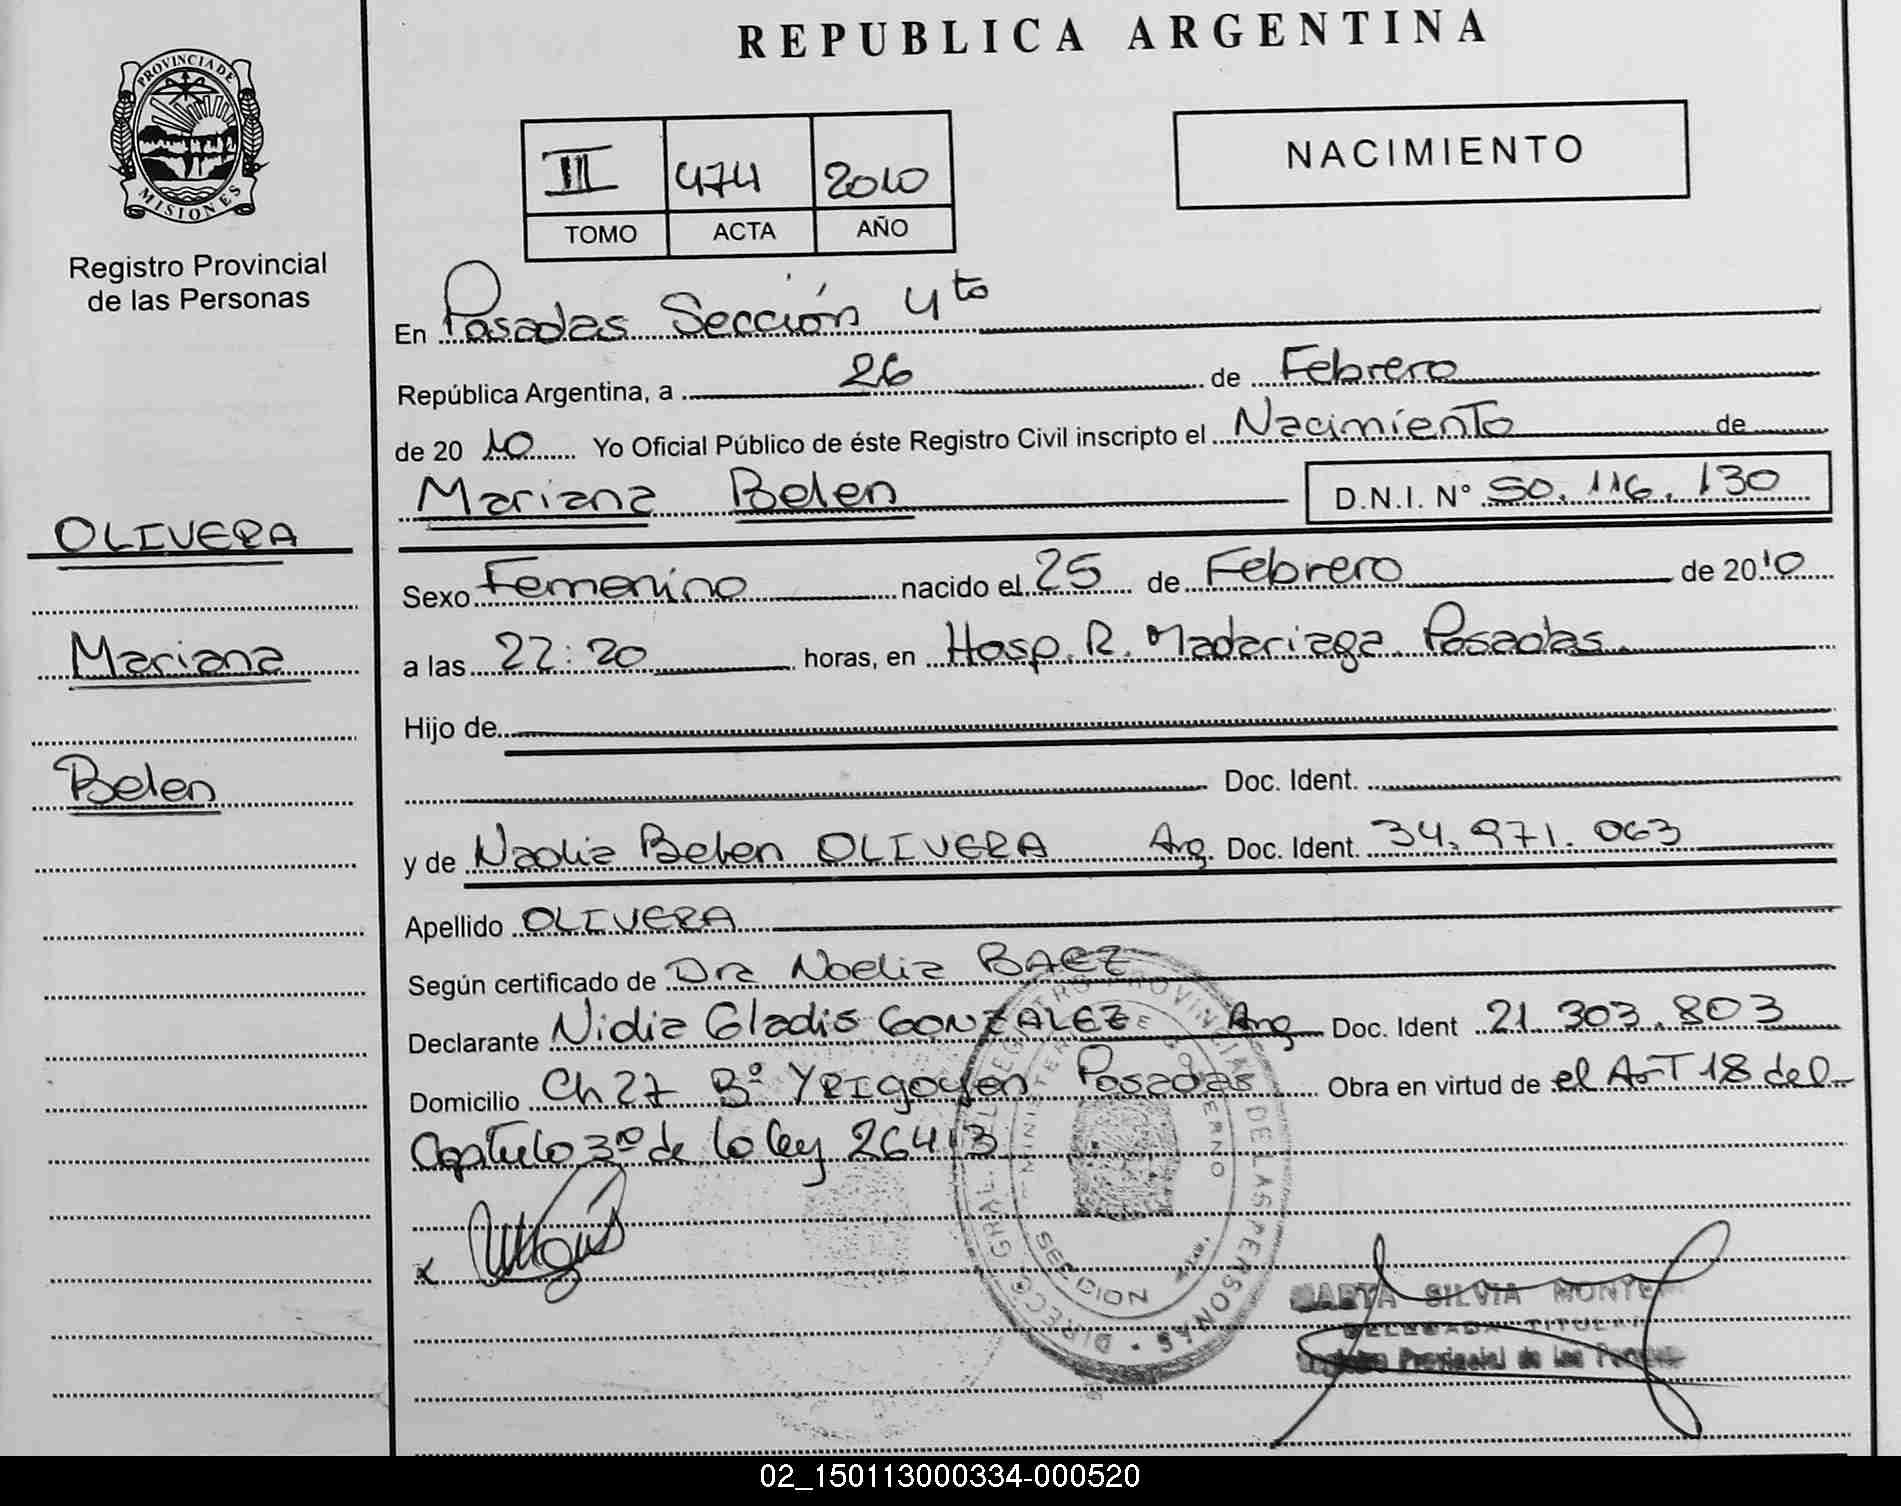 REPUBLICA ARGENTINA
PROVINCIA DE
MISIONES
Registro Provincial
de las Personas
III 474 2010
TOMO ACTA AÑO
NACIMIENTO
En Posadas Sección 4to
República Argentina, a 26 de Febrero
de 2010 Yo Oficial Público de éste Registro Civil inscripto el Nacimiento de
Mariana Belen D.N.I. N° 50.116.130
OLIVERA
Mariana
Belen
Sexo Femenino nacido el 25 de Febrero de 2010
a las 22:20 horas, en Hosp. R. Madariaga. Posadas.
Hijo de
Doc. Ident.
y de Nadia Belen OLIVERA Arg. Doc. Ident. 34.971.063
Apellido OLIVERA
Según certificado de Dra Noelia BAEZ
Declarante Nidia Gladis GONZALEZ Arg Doc. Ident 21.303.803
Domicilio Ch 27 B° YRIGOYEN Posadas Obra en virtud de el ArT 18 del
Capítulo 3ro de la ley 26413
x
DIRECC. GRAL. DEL REGISTRO PROVINCIAL DE LAS PERSONAS
MINISTERIO DE GOBIERNO
SECCION
MARTA SILVIA
DELEGADA TITULAR
Registro Provincial de las
02_150113000334-000520